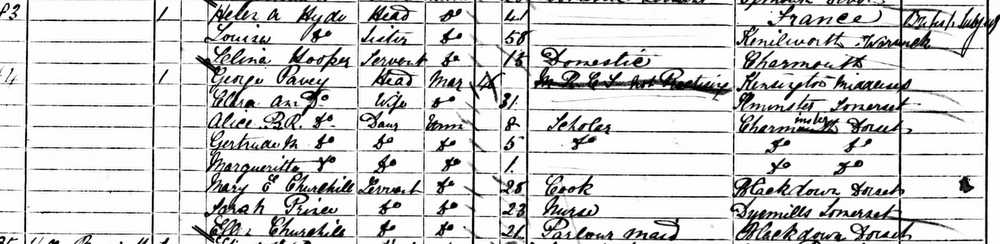 83 1 Helen A Hyde Head Do 41 France British Subject
Louisa Do Sister Do 58 Kenilworth Warwick
Elina Hooper Servant Do 15 Domestic Charmouth
84 1 George Pavey Head Mar M R C S not Practising Kensington Middlesex
Clara Ann Do Wife Do 31 Ilminster Somerset
Alice B.R. Do Daur Unm 8 Scholar Charminster Dorset
Gertrude Do Do 5 Do Do Do
Margueritte Do Do Do 1 Do Do
Mary E Churchill Servant Do 28 Cook Blackdown Dorset
Sarah Prince Do Do 23 Nurse Dyemills Somerset
Ellen Churchill Do Do 21 Parlour Maid Blackdown Dorset